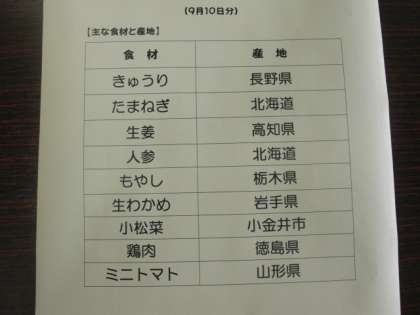 (9月10日分)
【主な食材と産地】
食 材 産 地
きゅうり 長野県
たまねぎ 北海道
生姜 高知県
人参 北海道
もやし 栃木県
生わかめ 岩手県
小松菜 小金井市
鶏肉 徳島県
ミニトマト 山形県